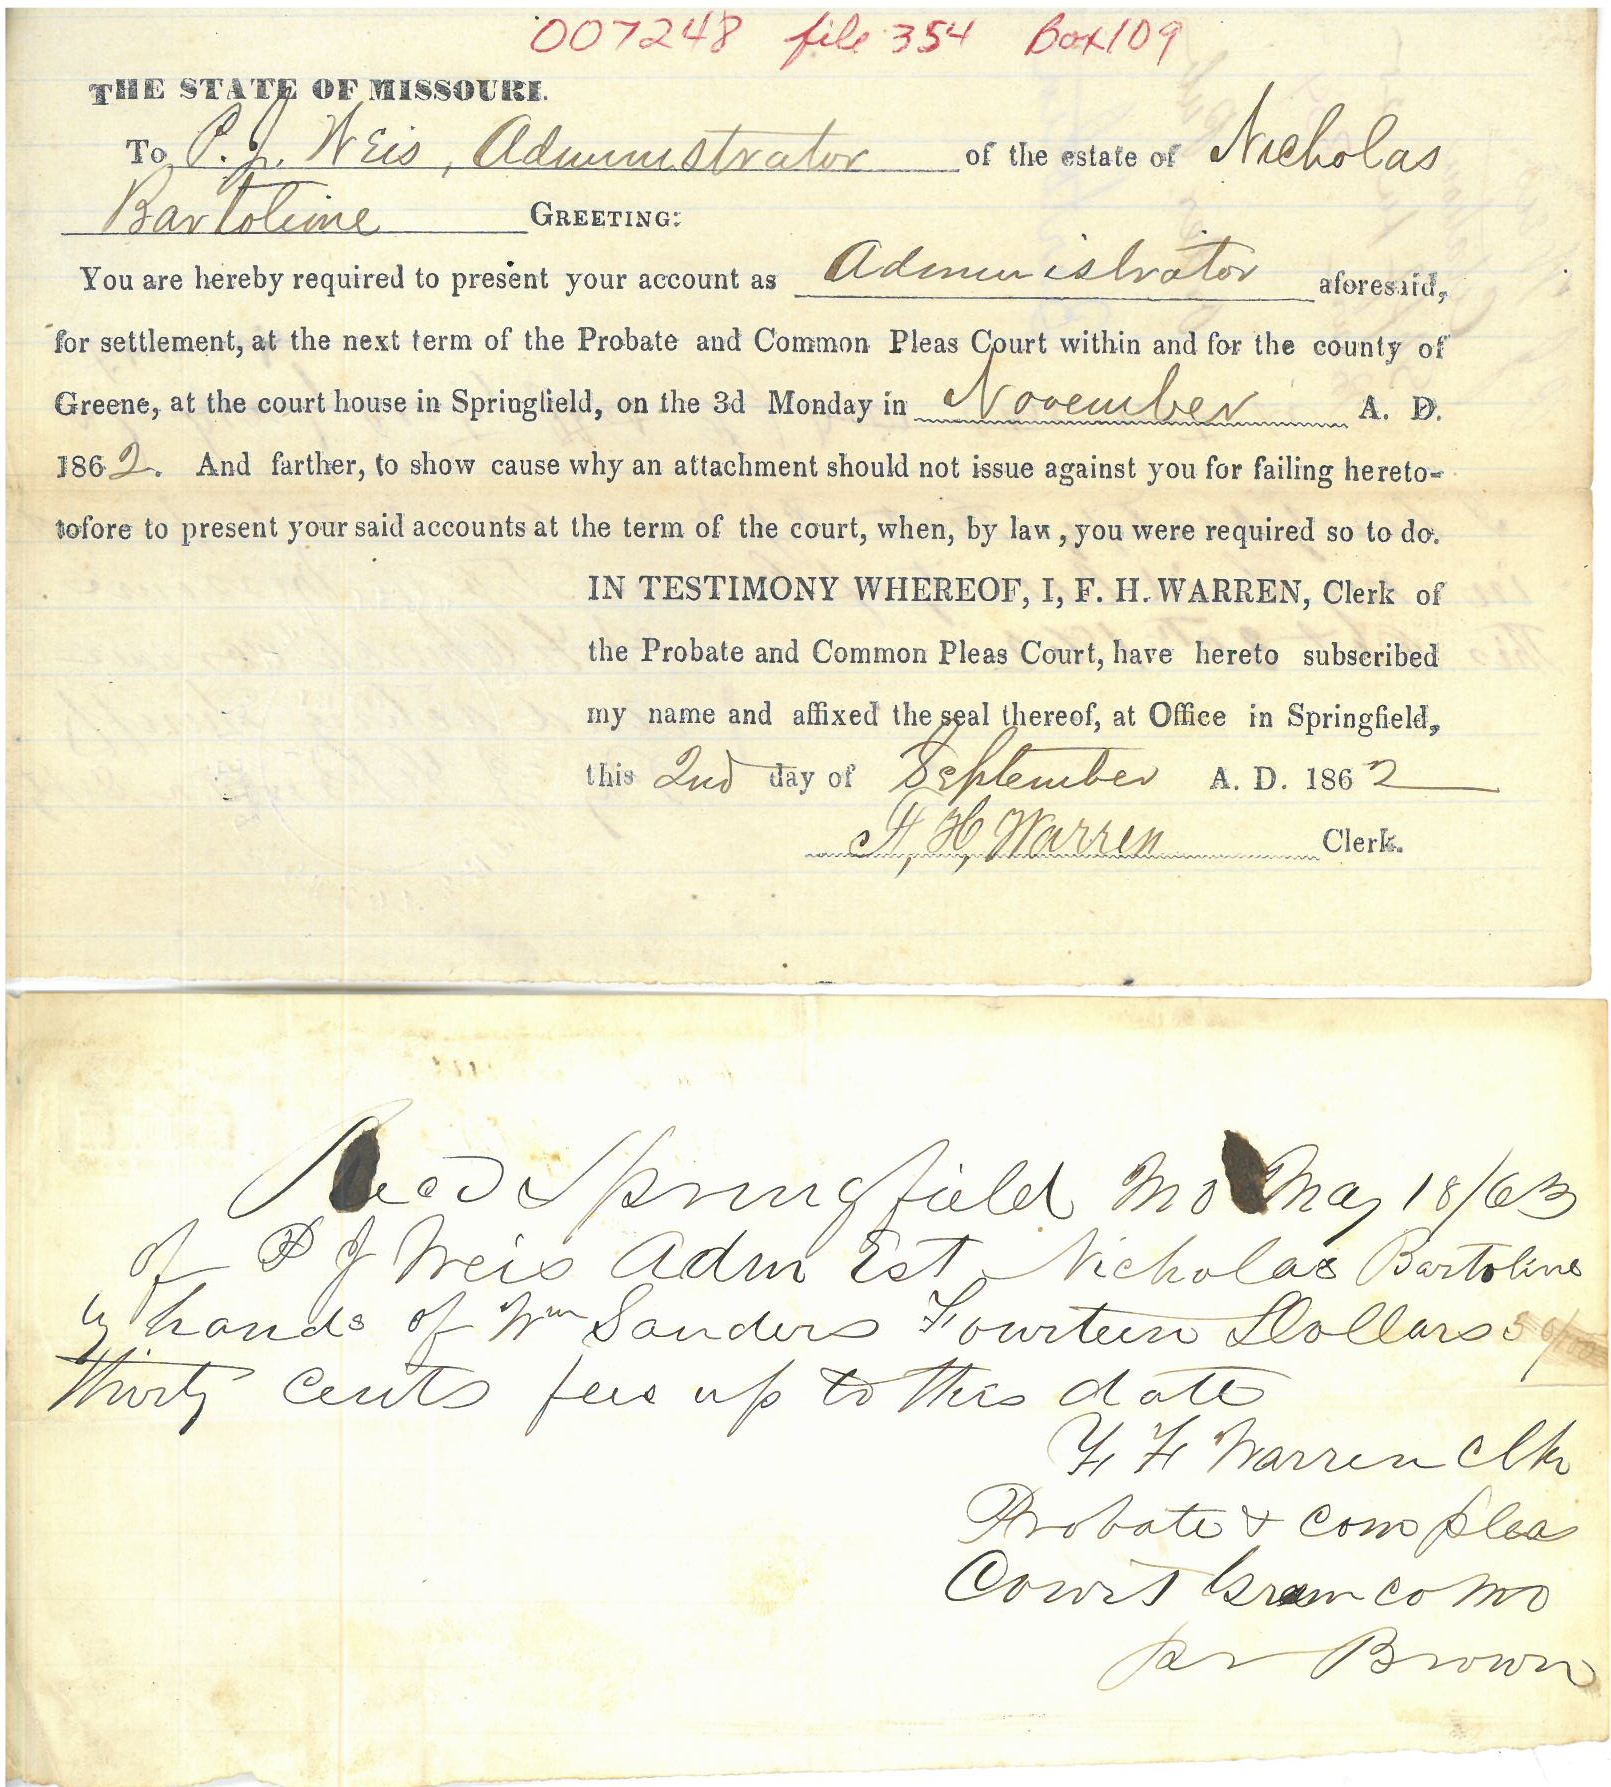 007248 file 354 Box 109
THE STATE OF MISSOURI.
To P. J. Weis, Administrator of the estate of Nicholas
Bartolime GREETING:
You are hereby required to present your account as Administrator aforesaid,
for settlement, at the next term of the Probate and Common Pleas Court within and for the county of
Greene, at the court house in Springfield, on the 3d Monday in November A. D.
1862. And farther, to show cause why an attachment should not issue against you for failing hereto-
tofore to present your said accounts at the term of the court, when, by law, you were required so to do.
IN TESTIMONY WHEREOF, I, F. H. WARREN, Clerk of
the Probate and Common Pleas Court, have hereto subscribed
my name and affixed the seal thereof, at Office in Springfield,
this 2nd day of September A. D. 1862
F, H, Warren Clerk.
Recd Springfield Mo May 18/63
of P J Weis Adm Est Nicholas Bartoline
by hands of Wm Sanders Fourteen Dollars
thirty cents fees up to this date
Warren Clk
Probate & Com Pleas
Court Green Co Mo
pr Brown